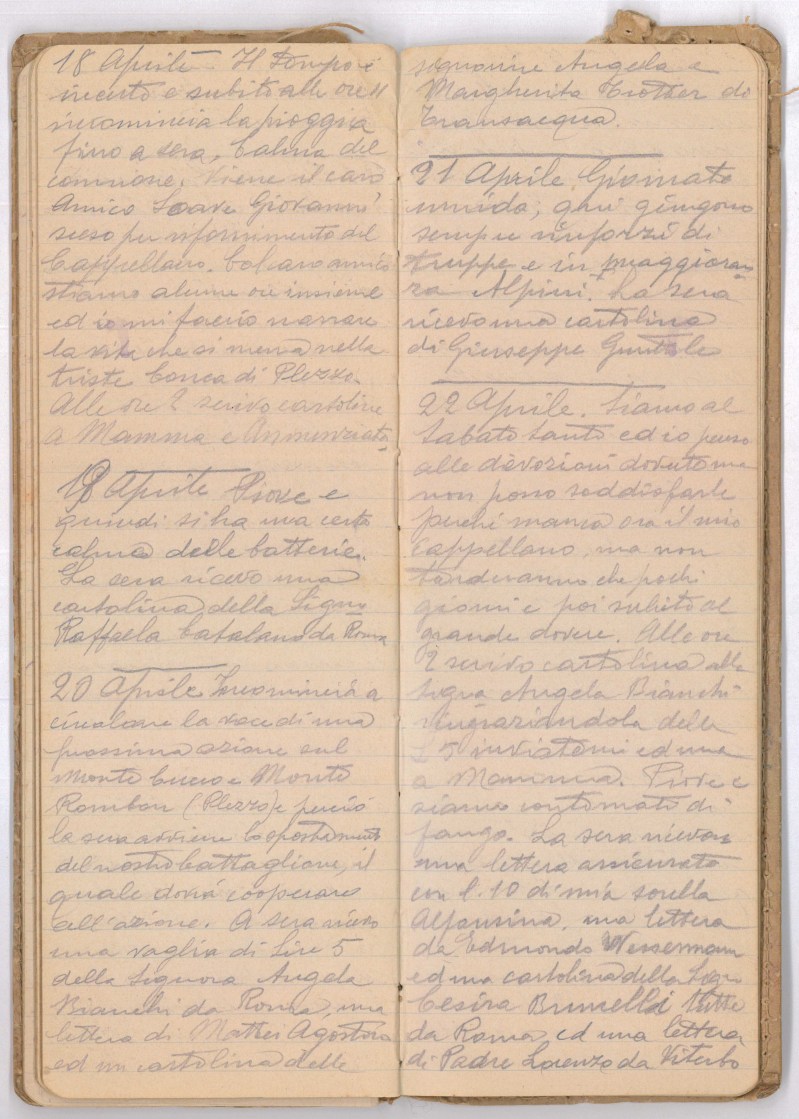 18 Aprile - Il tempo è
incerto e subito alle ore 11
incomincia la pioggia
fino a sera, Calma del
cannone. Viene il caro
Amico Soave Giovanni
sceso per rifornimento del
Cappellano. Col caro amico
stiamo alcune ore insieme
ed io mi faccio narrare
la vita che si mena nella
triste Conca di Plezzo.
Alle ore 2 scrivo cartoline
a Mamma e Annunziata
19 Aprile Piove e
quindi si ha una certa
calma delle batterie.
La sera ricevo una
cartolina della Sigra
Raffaela Catalano da Roma
20 Aprile Incomincia a
circolare la voce di una
prossima azione sul
Monte Cucco e Monte
Rombon (Plezzo) e perciò
la sera avviene lo spostamento
del nostro battaglione, il
quale dovrà cooperare
all'azione. A sera ricevo
una vaglia di Lire 5
della Signora Angela
Bianchi da Roma, una
lettera di Mattei Agostino
ed un cartolina delle
signorine Angella e
Margherita Trotter di
Transacqua.
21 Aprile. Giornata
umida; qui giungono
sempre rinforzi di
truppe e in maggioran
za Alpini. La sera
ricevo una cartolina
di Giuseppe
22 Aprile. Siamo al
Sabato Santo ed io penso
alle divozioni dovute ma
non posso soddisfarle
perchè manca ora il mio
cappellano, ma non
tarderanno che pochi
giorni e poi subito al
grande dovere. Alle ore
2 scrivo cartolina alla
Sigra Angela Bianchi
ringraziandola delle
L 5 inviatemi ed una
a Mamma. Piove e
siamo contornati di
fango. La sera ricevo
una lettera assicurata
con l. 10 di mia sorella
Alfonsina, una lettera
da Edmondo Wessermann
ed una cartolina della Sigra
Cesira Brunelli tutte
da Roma ed una lettera
di Padre Lorenzo da Viterbo